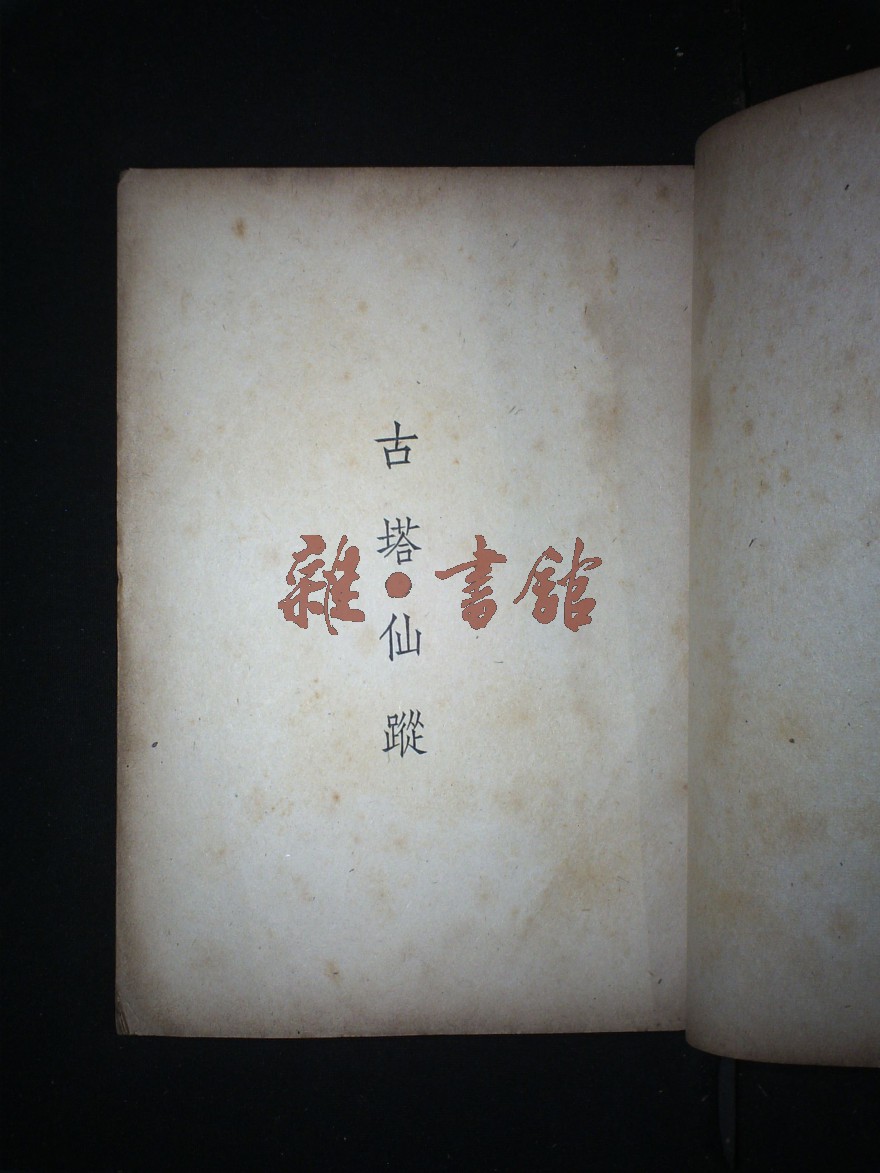 古塔仙蹤
雜·書館